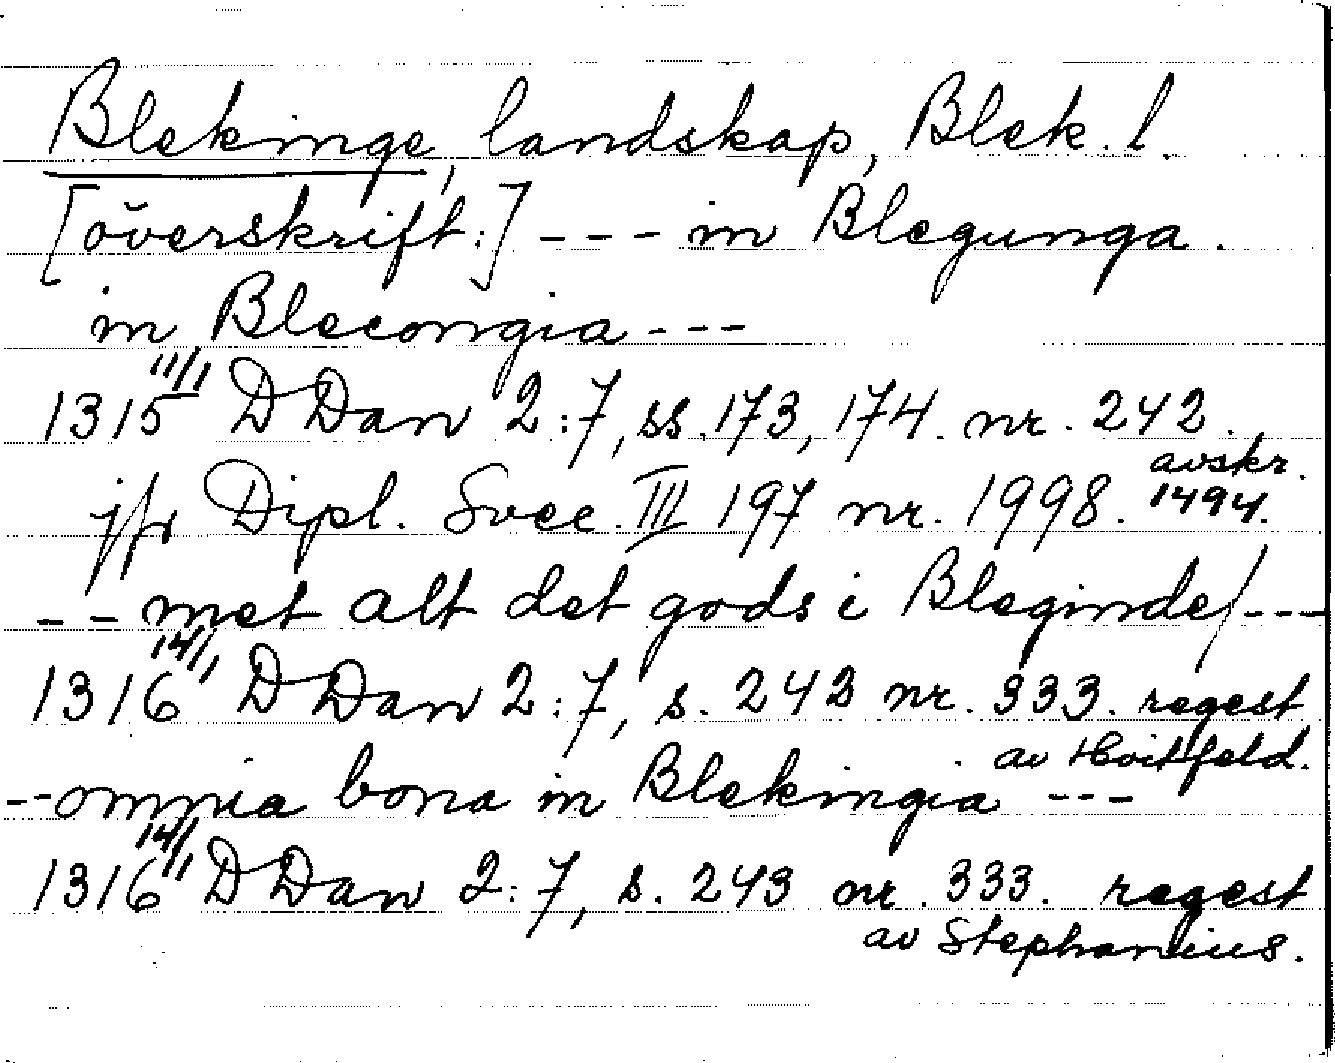 Blekinge, landskap, Blek. l.
[överskrift:] --- in Blegunga.
in Blecongia ---
1315 11/1 DDan 2:7, ss. 173, 174. nr. 242.
jfr Dipl. Svec. III 197 nr. 1998. avskr. 1494.
-- met alt det gods i Bleginde/ ---
1316 14/1 DDan 2:7, s. 243 nr. 333. regest
av Hvitfeld.
-- omnia bona in Blekingia ---
1316 14/11 DDan 2:7, s. 243 nr. 333. regest
av Stephanius.